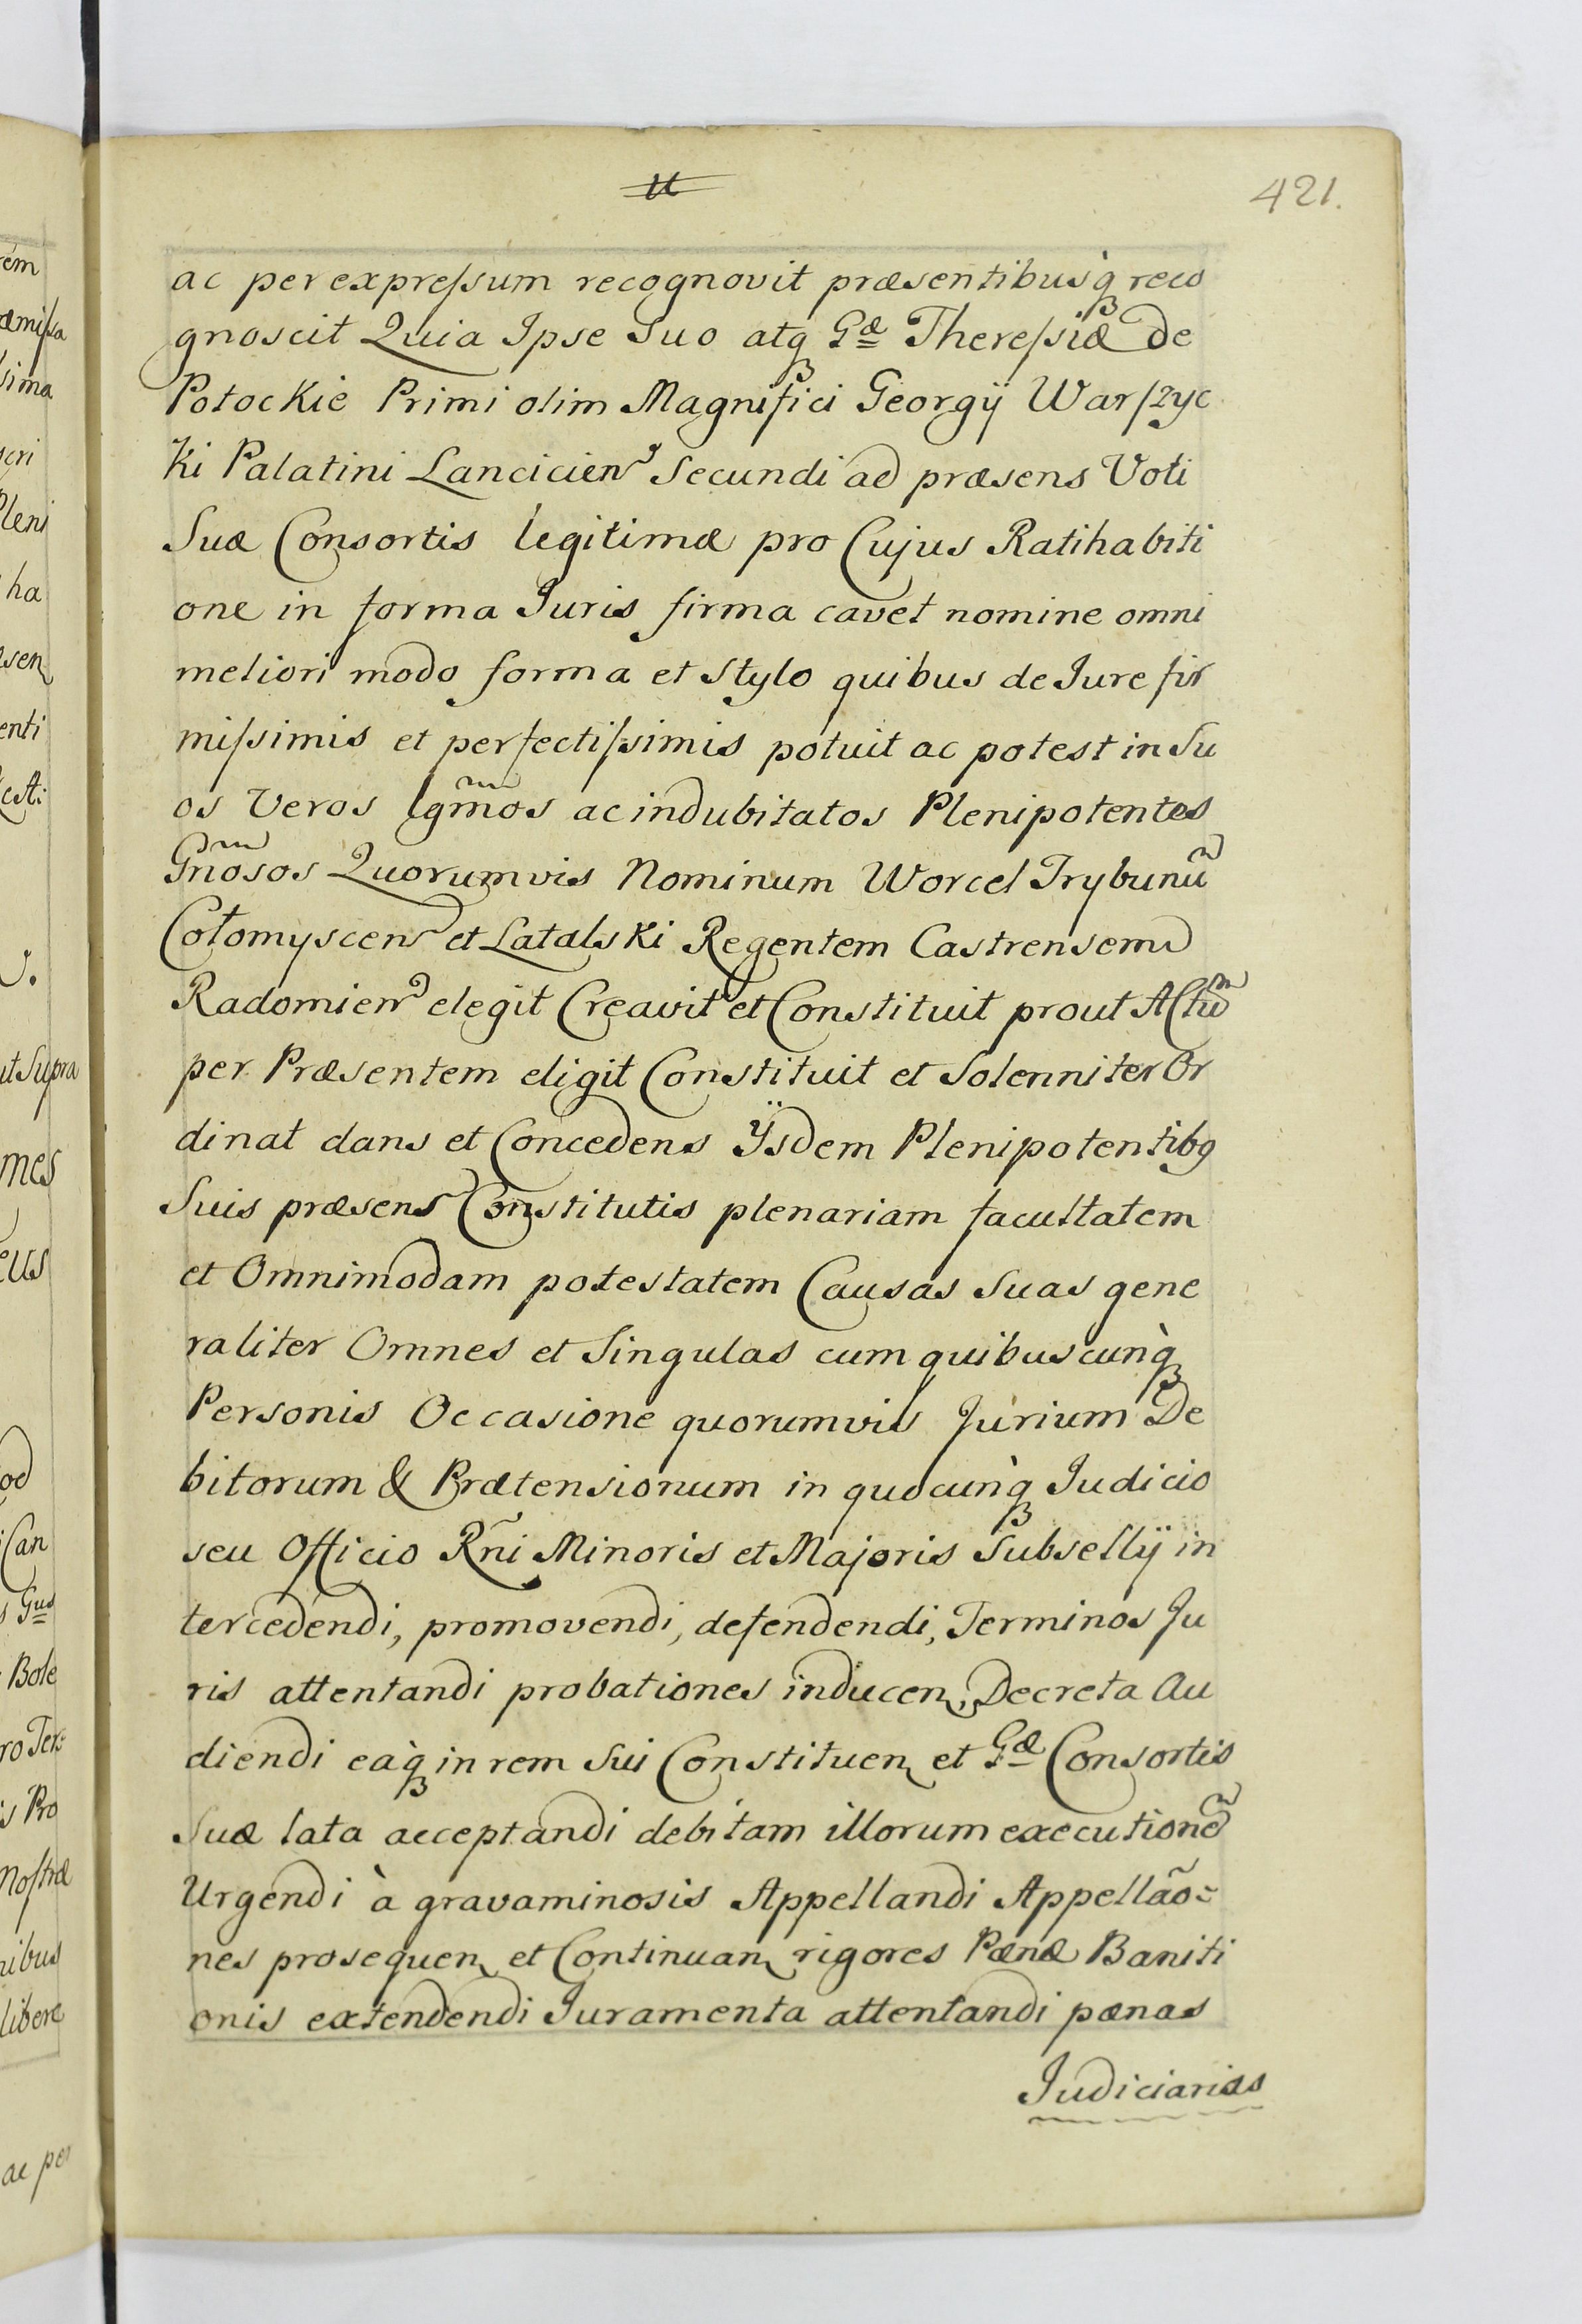 421.
ac per expreſsum recognovit præsentibusq̀ reco
gnoscit Quia Ipse Suo atq Gæ Thereſsiæ De
Potockie Primi olim Magnifici Georgÿ Warſzyc
Ki Palatini Lanciciens Secundi ad præsens Voti
Suæ Consortis legitimæ pro Cujus Ratihabiti
one in forma Juris firma cavet nomine omni
meliori modo forma et Stylo quibus de Jure fir
miſsimis et perfectiſsimis potuit ac potest in Su
os Veros lgm̃os ac indubitatos Plenipotentes
Gñosos Quorumvis Nominum Worcel Trybunũ
Cołomyscens et Latalski Regentem Castrensem
Radomiens elegit Creavit et Constituit prout Actũ
per Præsentem eligit Constituit et Solenniter Or
dinat dans et Concedens Ÿsdem Plenipotentibg
Suis præsens Constitutis plenariam facultatem
et Omnimodam potestatem Causas Suas gene
raliter Omnes et Singulas cum quibuscunq̀
Personis Occasione quorumvis Jurium De
bitorum & Prætensionum in quocunq̀ Judicio
seu Officio Rñi Minoris et Majoris Subsellÿ in
tercedendi, promovendi, defendendi, Terminos Ju
ris attentandi probationes inducen, Decreta Au
diendi eaq̀ in rem Sui Constituen et Gæ Consortis
Suæ lata acceptandi debitam illorum executionẽ
Urgendi à gravaminosis Appellandi Appellão=
nes prosequen et Continuan rigores Pænæ Baniti
onis extendendi Juramenta attentandi pænas
Judiciarias